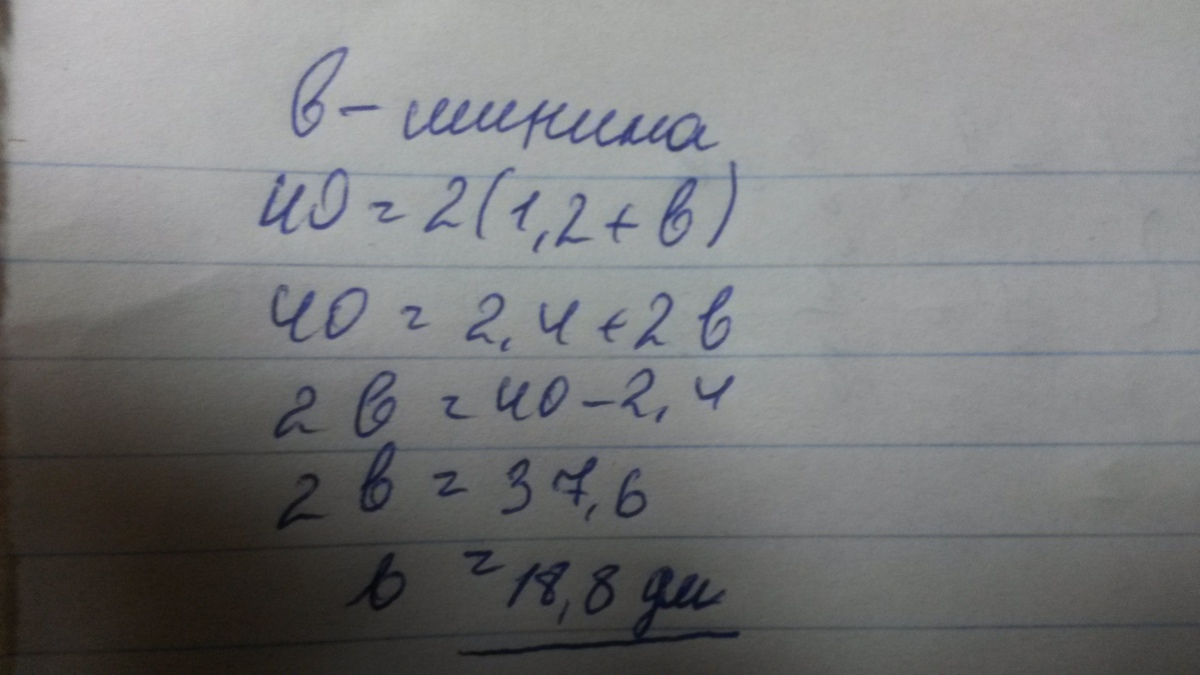 в – ширина
40 = 2(1,2 + в)
40 = 2,4 + 2 в
2 в = 40 – 2,4
2 в = 37,6
в = 18,8 дм